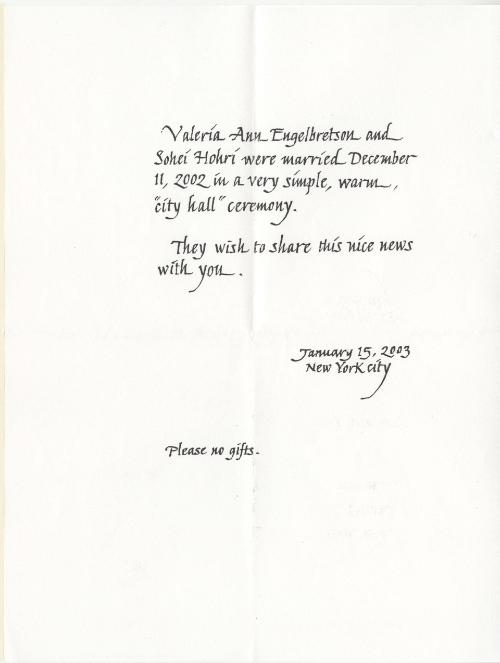 Valeria Ann Engelbretson and
Sohei Hohri were married December
11, 2002 in a very simple, warm,
"city hall" ceremony.
They wish to share this nice news
with you.
January 15, 2003
New York city
Please no gifts.